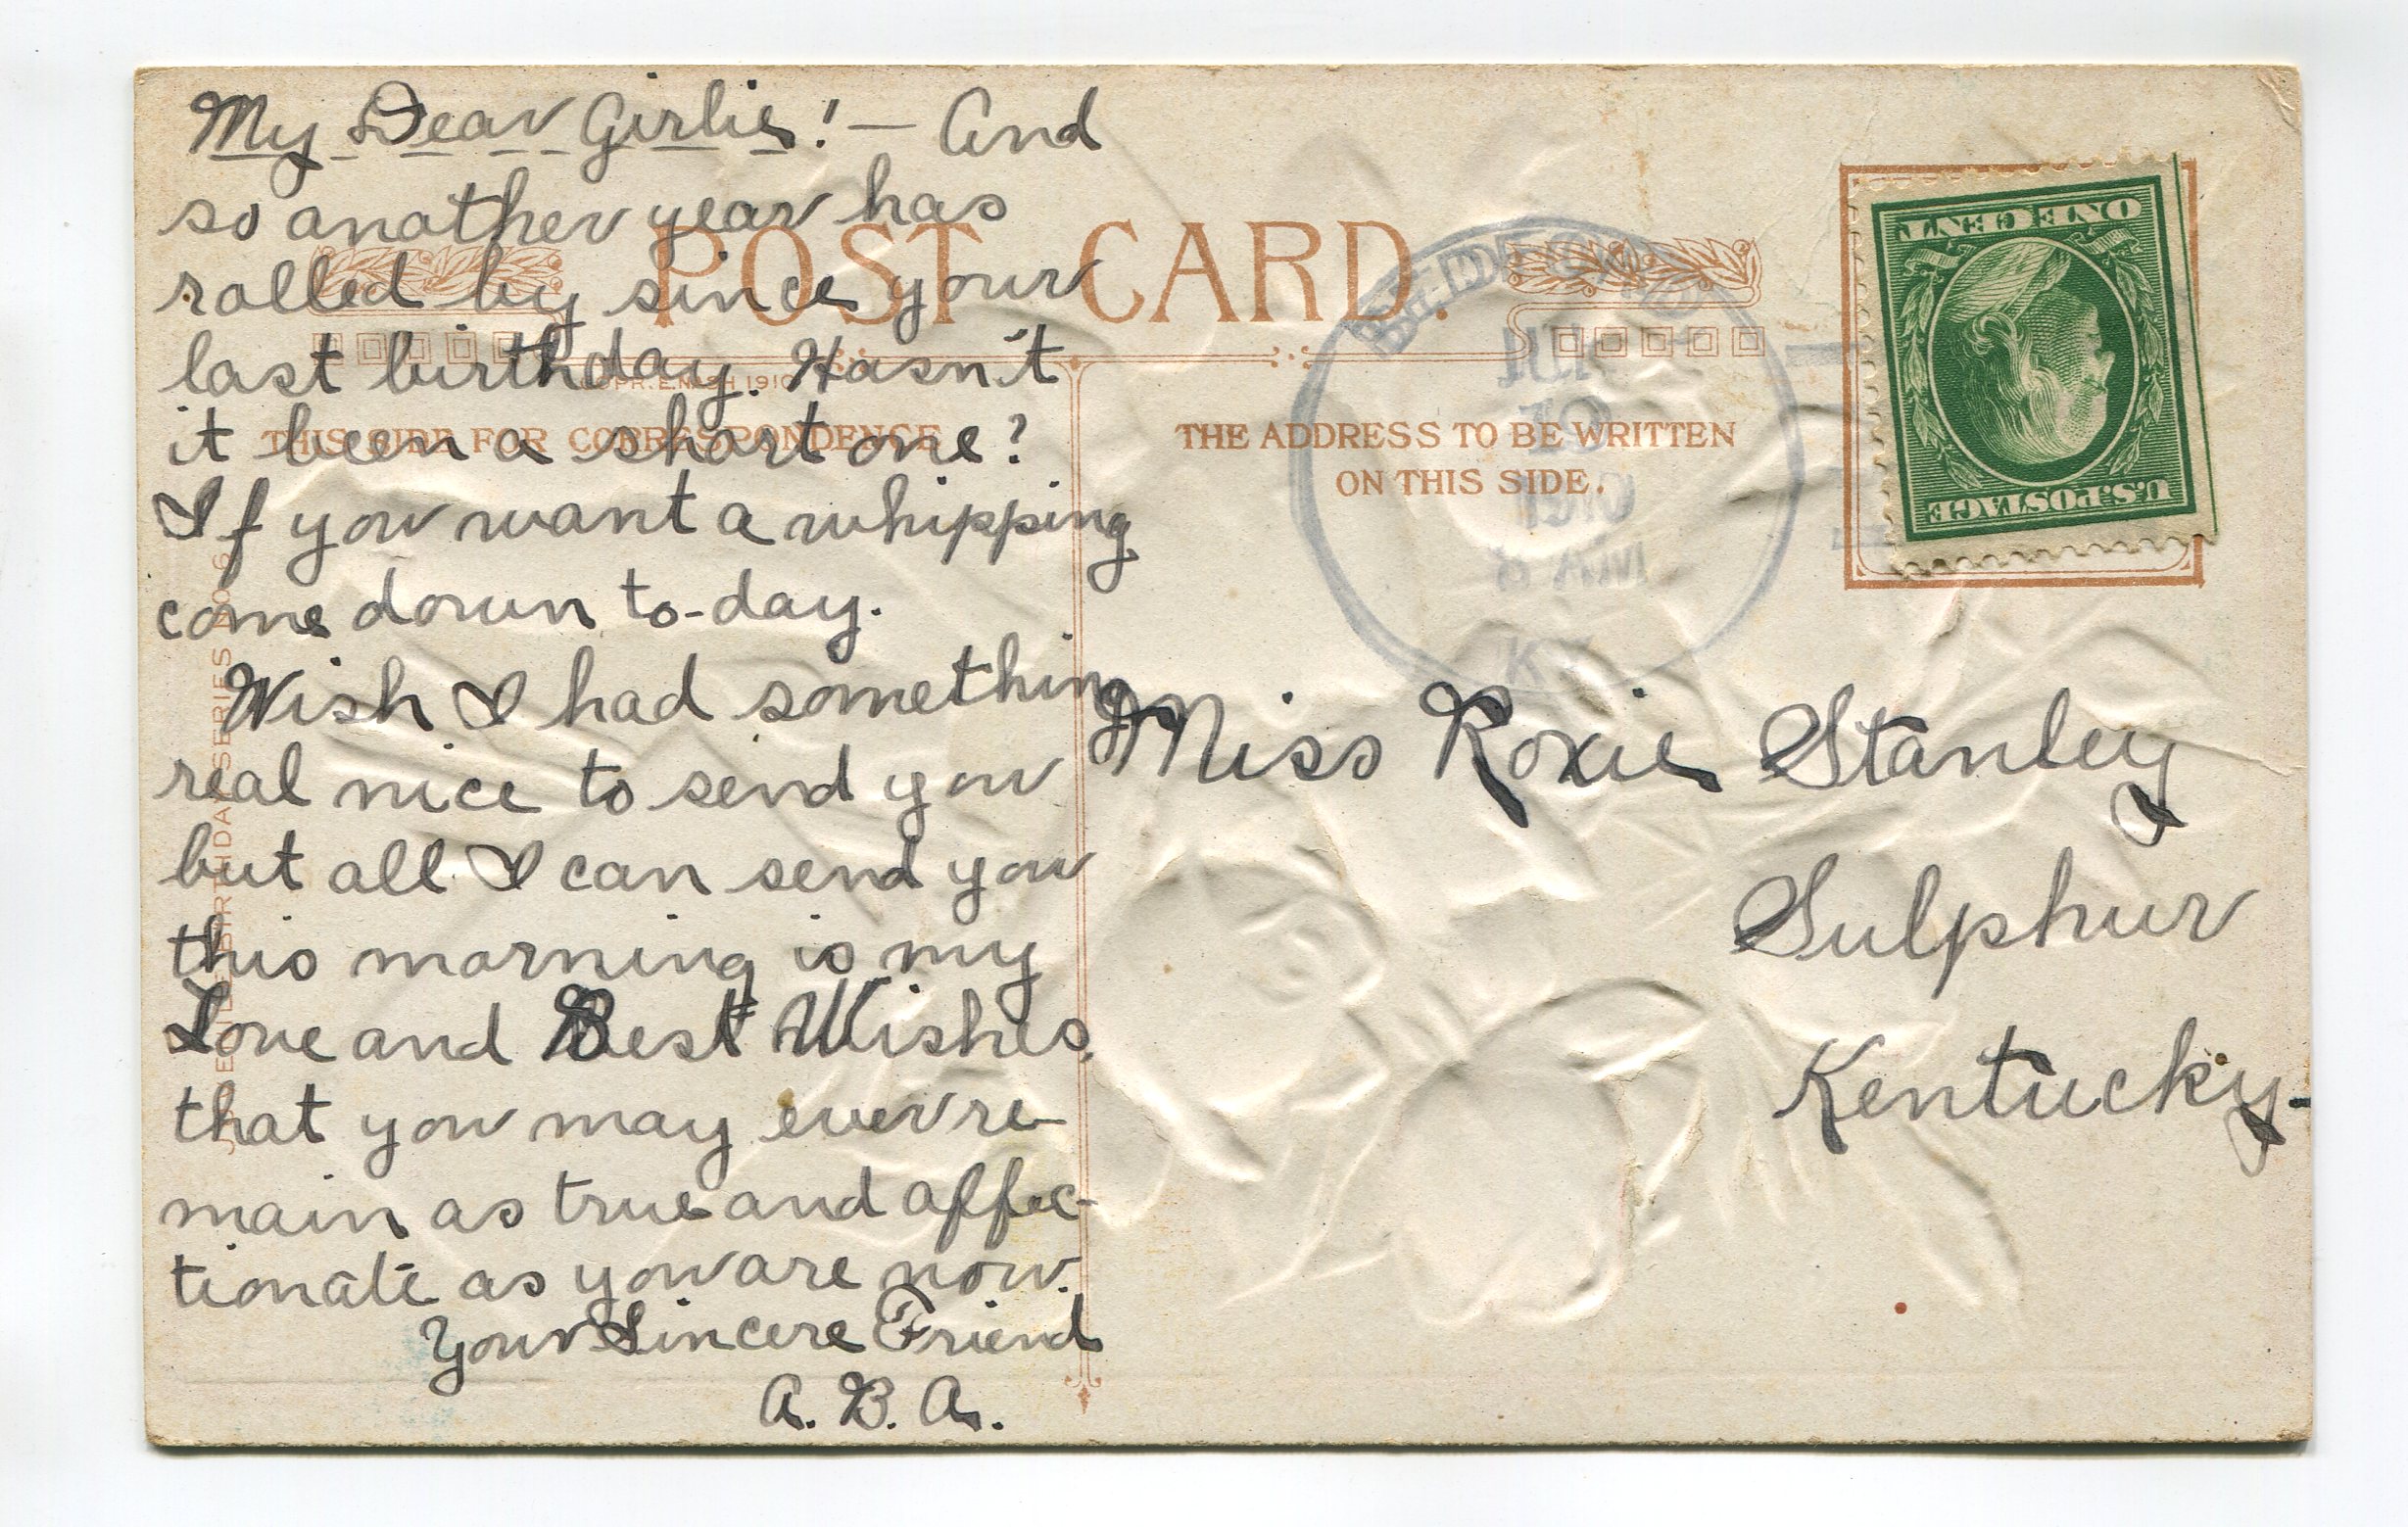 My Dear Girlie! — And
so another year has
rolled by since your
last birthday. Hasn't
it been a short one?
If you want a whipping
come down to-day.
Wish I had something
real nice to send you
but all I can send you
this morning is my
Love and Best Wishes,
that you may ever re-
main as true and affec-
tionate as you are now.
Your Sincere Friend
A. B. A.
POST CARD.
COPR. E. NASH 1910
THIS SIDE FOR CORRESPONDENCE
THE ADDRESS TO BE WRITTEN
ON THIS SIDE.
BIRTHDAY SERIES NO 6
JUL
19
1910
8 AM
KY.
U.S. POSTAGE
ONE CENT
Miss Roxie Stanley
Sulphur
Kentucky